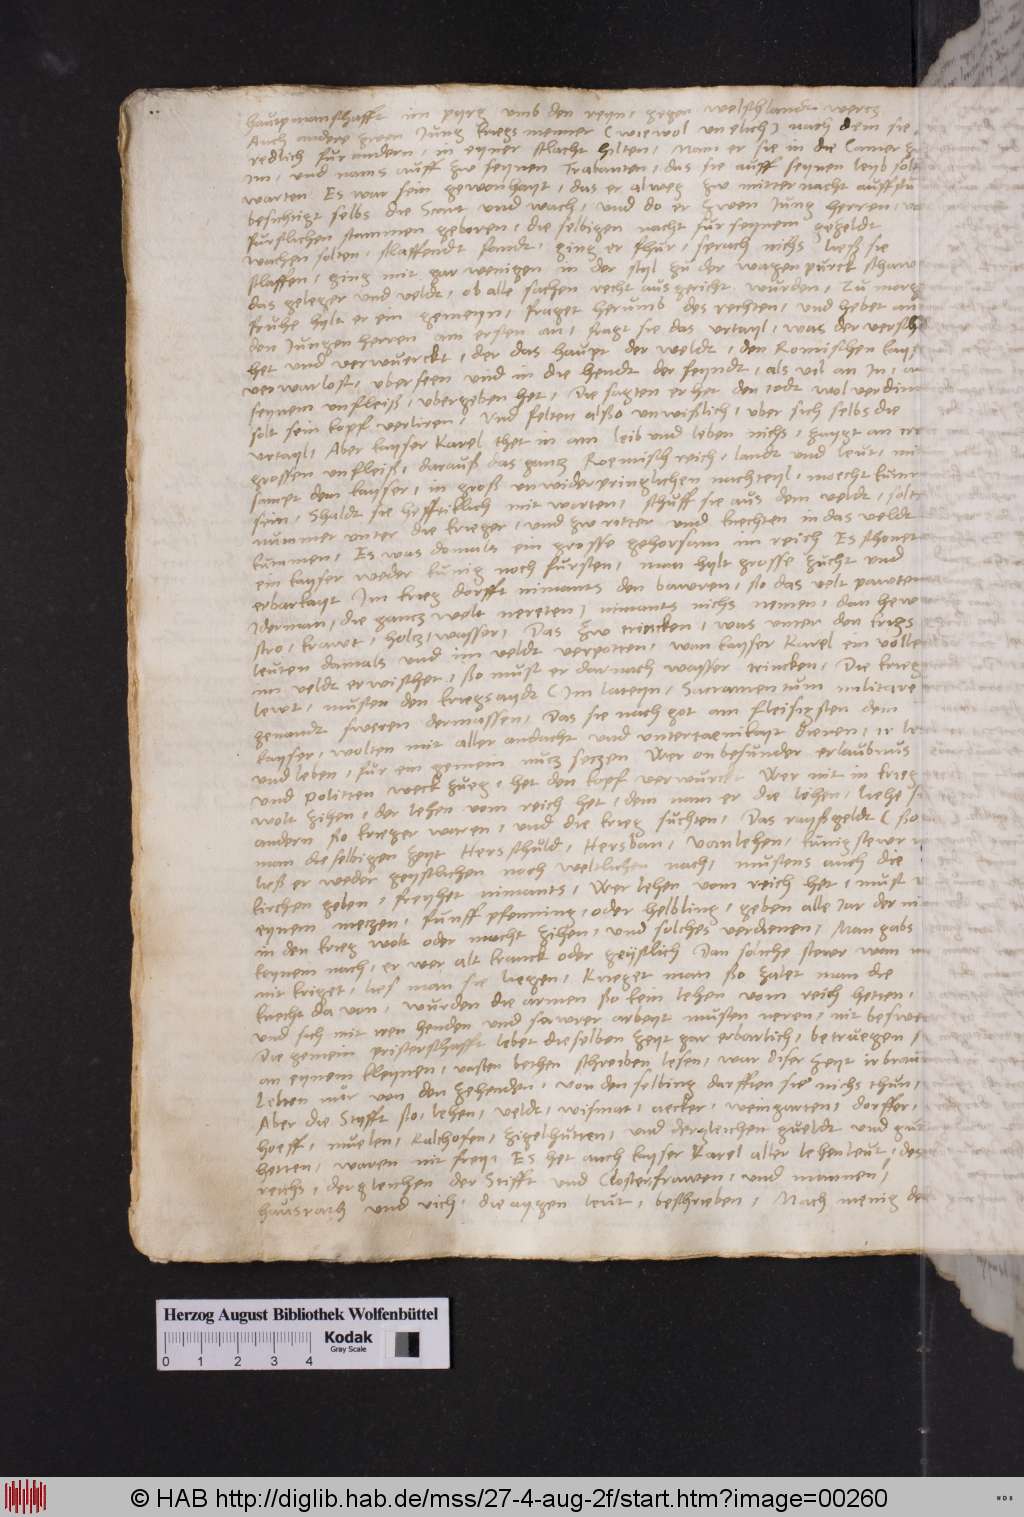 haubtmanschafft im pyrg umb den reyn, gegen welschlandt wercz
Auch andere zwen Jung kriegs menner (wie wol un elich) nach dem sie
redlich fur andern, in eyner schlacht hilten, Nam er sie in die Camer zu
im, und nams auff zw seynen Trabanten, das sie auff seynen leyb solt
warten Es war sein gewonhayt, das er alweg zw mitter nacht auffstu
besichtigt selbs die Scart und wach, und do er zwen Jung herren, vo
furstlichen stammen geboren, die selbigen nacht fur seynem gezeldt
wachen solten, schlaffendt fandt, ging er fhur, sprach nichs ließ sie
schlaffen, ging mit gar wenigen in der styl zu der wagen purck schaw
das geleger und veldt, ob alle sachen recht ausgericht wurden, Zu morge
fruhe hylt er ein gemeyn, fraget herumb des rechten, und hebet an
den Jungen herren am ersten an, fragt sie das urtayl, was der versch
het und verwuerckt, der das haupt der weldt, den Romischen kays
verwarlost, uberseen und in die hendt der feyndt, als vil an In, a
seynem unfleiß, ubergeben het, Die sagten er het den todt wol verdin
solt sein kopf verliren, Und felten alßo unwißlich, uber sich selbs die
urtayl, Aber kayser Karel thet in am leib und leben nichs, zaygt an ire
grossen unfleiß, darauß das gancz Roemisch reich, landt und leut, mit
sampt dem kayser, in groß unwiderpringlichen nachteyl, moecht kum
sein, Schaldt sie hefftiklich mit worten, schuff sie aus dem veldt, solt
nummer unter die krieger, und zw ritter und knechten in das veldt
kummen, Es was domals ein grosse gehorsam im reich Es schonet
ein kayser weder kunig noch fursten, man hylt grosse zucht und
erbarkayt Im krieg dorfft nimants den bawren, so das velt pawten
Iderman, die gancz welt nereten, nimants nichs nemen, dan hew
stro, krawt, holcz, wasser, Das zw trincken, was unter den krigs
leuten damals und im veldt verpotten, wan kayser Karel ein volle
im veldt erwischet, ßo must er darnach wasser trincken, Die krieg
lewt, musten den kriegsaydt (Im lateyn, Sacramentum militare
genandt sweren dermassen, Das sie nach got am fleisigsten dem
kayser, wolten mit aller andacht und untertaenikayt dienen, ir le
und leben, fur ein gemein nucz seczen Wer on besunder erlaubnus
und Politten weck zueg, het den kopf verwurckt Wer nit in krieg
wolt zihen, der lehen vom reich het, dem nam er die lehen, liehe si
andern ßo krieger waren, und die krieg suchten, Das rayßgeldt (ßo
man die selbigen zeyt Herschuld, Hersban, vanlehen, kunigstewr
ließ er weder geystlichen noch weltlichen nach, mustens auch die
kirchen geben, freyhet nimants, Wer lehen vom reich het, must
eynem meczen, funff pfenning, oder helbling, geben alle Jar der ni
in den krieg wolt oder mocht zihen, und solches verdienen, Man gabs
keynem nach, er wer alt kranck oder geystlich Dan solche stewr wan
nit kriget, lies man sie liegen, Krieget man ßo zalet man die
knecht da von, wurden die armen ßo kein lehen vom reich hetten,
und sich mit iren henden und sawrer arbeyt musten neren, nit beswe
Die gemein pristerschafft lebet die selben zeyt gar erbarlich, betruegen s
an eynem kleynen, vasten bethen schreiben lesen, war diser zeyt ir brau
Lebten nur von den zehenden, von den selbing dorfften sie nichs thun,
Aber die Styfft ßo, lehen, veldt, wismat, aecker, weingarten, dorffer,
hoeff, muelen, kalchofen, zigelhutten, und dergleichen gueldt und gut
hetten, waren nit frey, Es het auch kayser Karel aller lehenleut, des
reichs, dergleichen der Stifft und Closterfrawen, und mannen,
hausrath und vich, die aygen leut, beschrieben, Nach menig de
Herzog August Bibliothek Wolfenbüttel
Kodak
Gray Scale
0 1 2 3 4
© HAB http://diglib.hab.de/mss/27-4-aug-2f/start.htm?image=00260